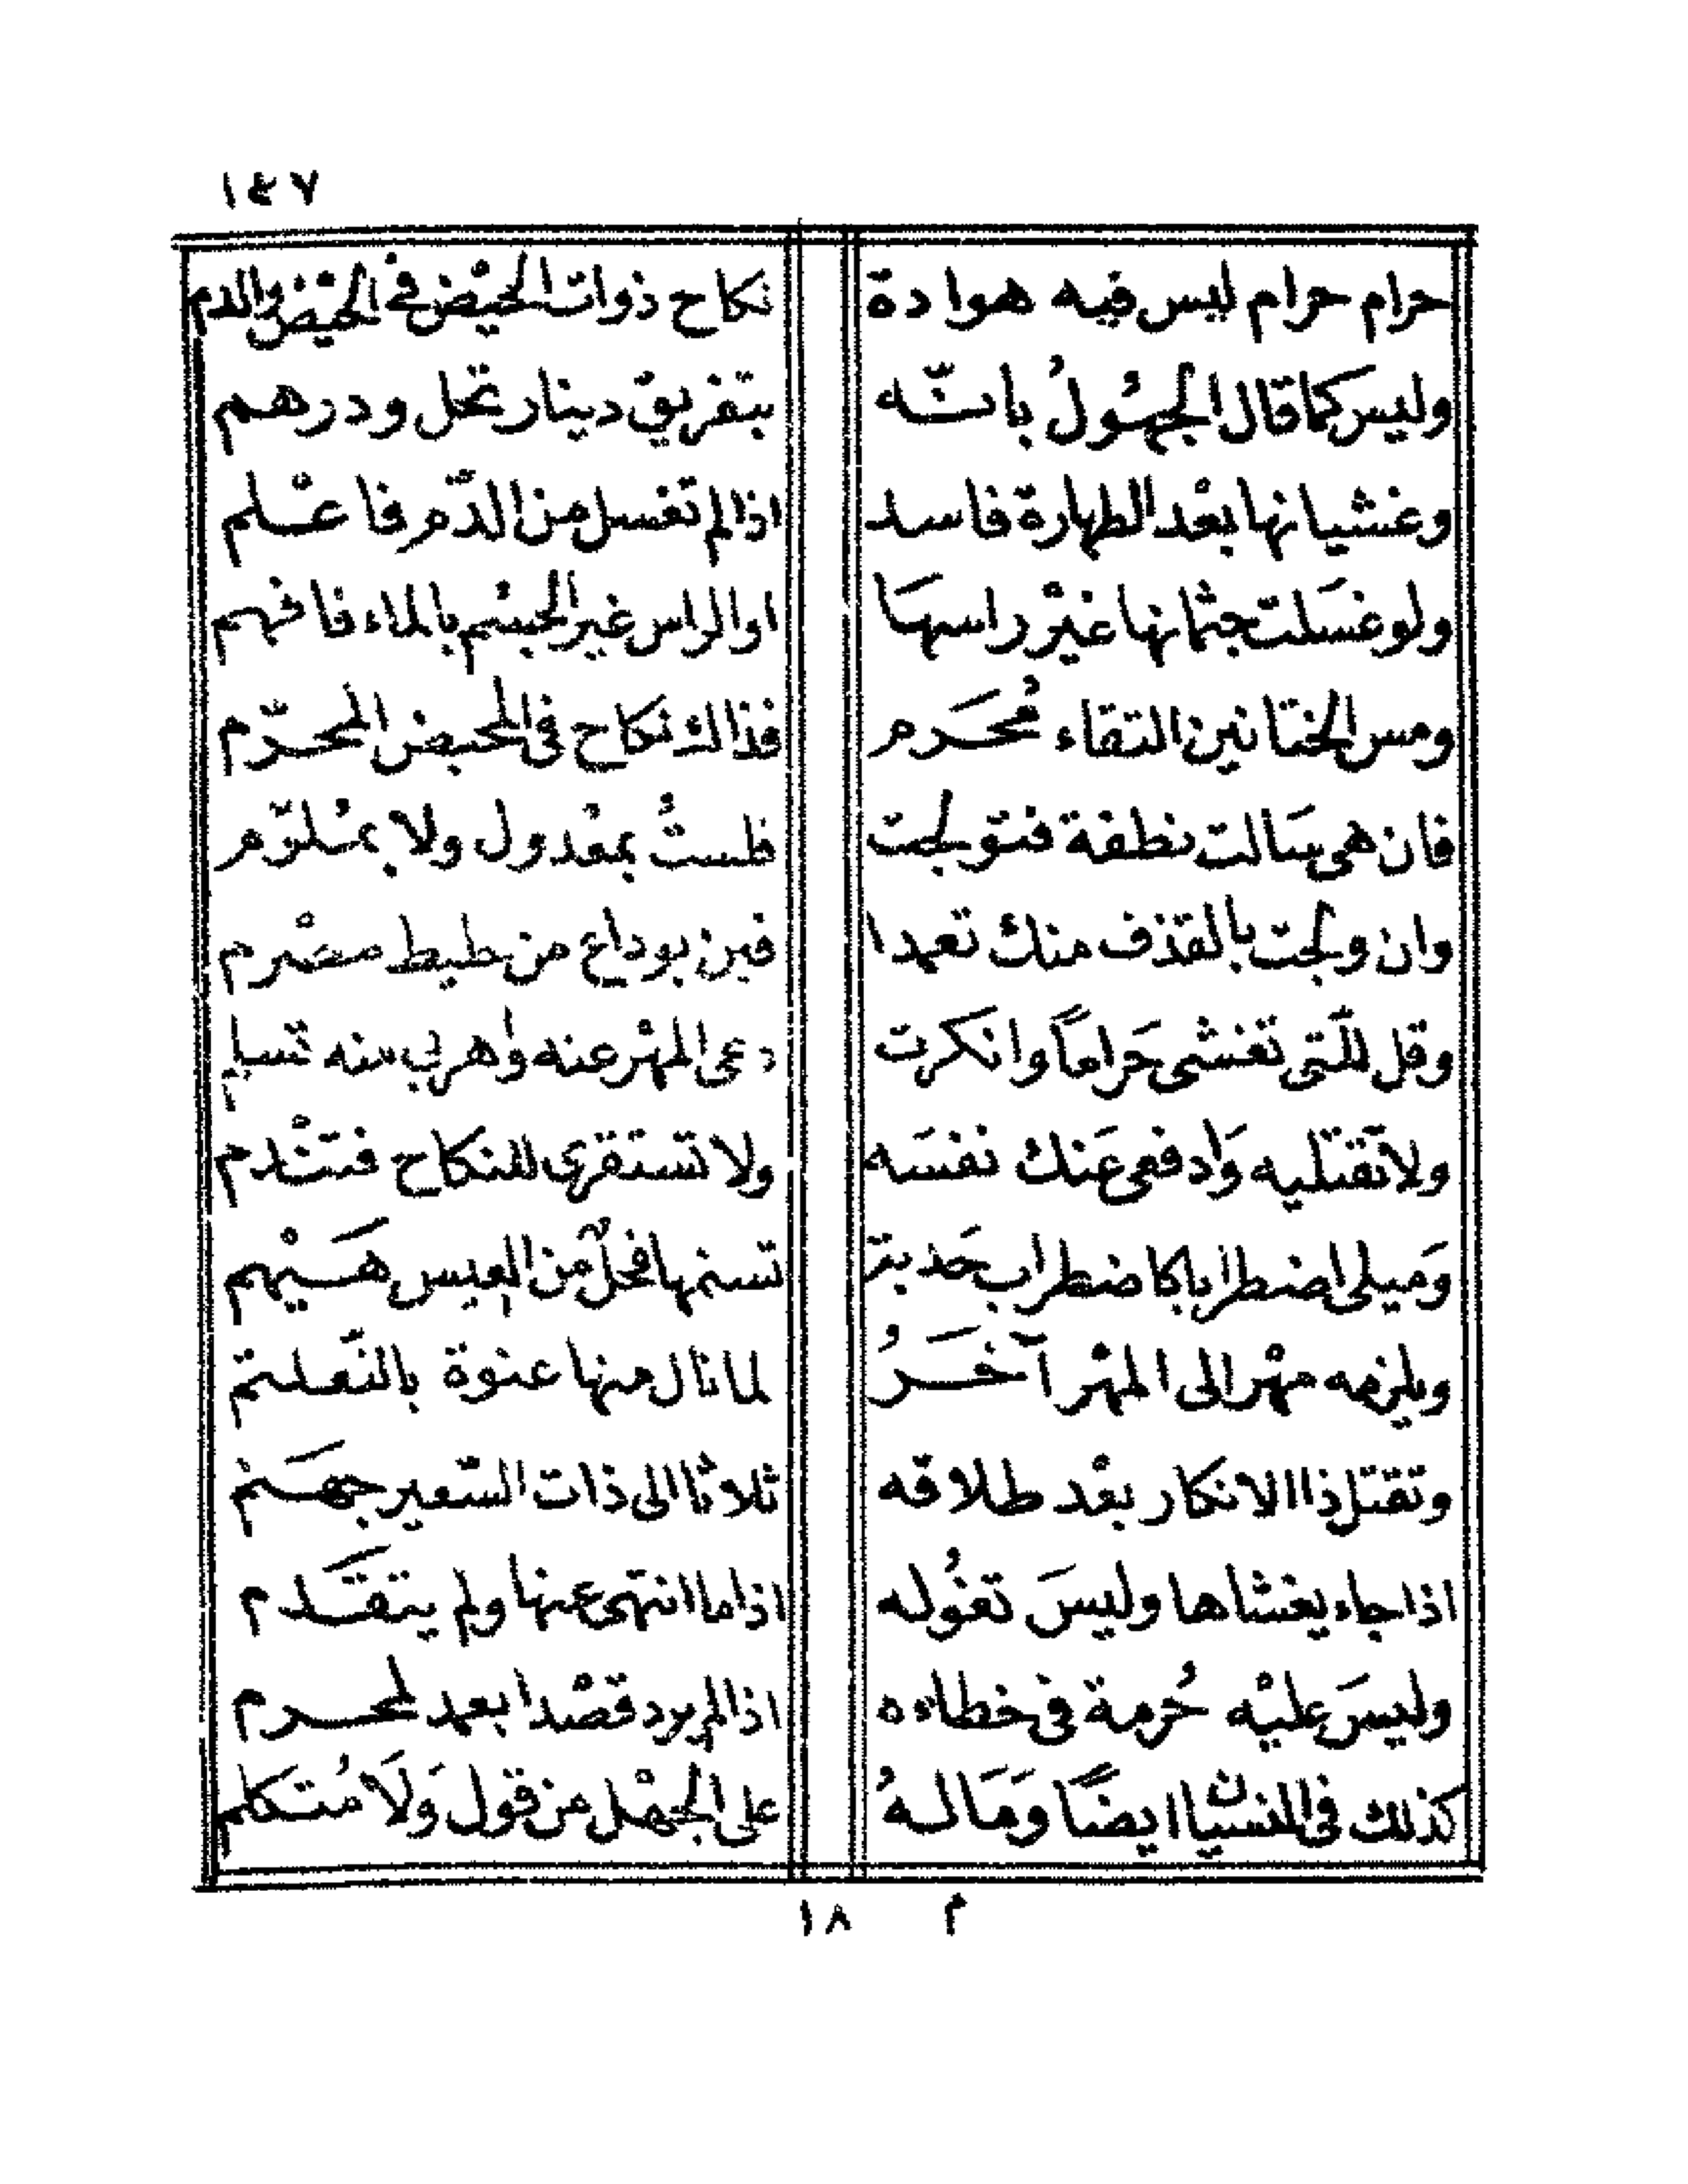 ١٤٧
حرام حرام ليس فيه هوادة نكاح ذوات الحيْض فى الحيْض والدم
وليس كما قال الجهُولُ بانّه بتفريق دينار تحل ودرهم
وغشيانها بعْد الطهارة فاسد اذا لم تغسل من الدّم فاعْلم
ولو غسَلت جثمانها غيْر راسهَا او الراس غير الجسْم بالماء فافهم
ومس الختانين التقاء مُحَرم فذاك نكاح فى المحيض المحرّم
فان هى سَالت نطفة فتولجت فلستُ بمعْدول ولا بمُلوّم
وان ولجت بالقذف منك تعمدا فبن بوداع من خليط مصْرم
وقل للّتى تغشى حَراماً وانكرت دعى المهْر عنه واهربى منه تسلم
ولا تقتليه وَادفعى عَنك نفسَه ولا تستقرى للنكاح فتنْدم
وَميلى اضطرابا كاضطراب تسنمها فحلٌ من العيس هَيْهم
ويلزمه مهْر الى المهْر آخَرُ لما نال منها عنوة بالتّعلتم
وتقتل ذا الانكار بعْد طلاقه ثلاثا الى ذات السّعير جهَنم
اذا جاء يغشاها وليسَ تغُوله اذا ما انتهى عنها ولم يتقَدم
وليسَ عليْه حُرمة فى خطاءه اذا لم يرد قصْدا بعمد لمحرم
كذلك فى النسيان ايضًا وَمَا لهُ على الجهْل من قول وَلَا مُتكلم
م ١٨